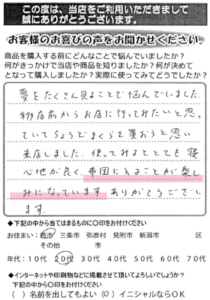 この度は、当店をご利用いただきまして
誠にありがとうございます。
お客様のお喜びの声をお聞かせください。
商品を購入する前にどんなことで悩んでいましたか?
何がきっかけで当店や商品を知りましたか?何が決めて
となって購入しましたか?実際に使ってみてどうでしたか?
夢をたくさん見ることで悩んでいました。
移店前からお店に行ってみたいと思
っていてちょうどまくらを買おうと思い
来店しました。使ってみるととても寝
心地が良く、布団に入ることが楽し
みになっています。ありがとうござい
ます。
◆下記の中から当てはまるものに○印をお付けください
お住まい: 三条市 弥彦村 見附市 新潟市 区
その他 市
年代:10代 20代 30代 40代 50代 60代 70代
◆インターネットや印刷物などに掲載させて頂いてよろしいでしょうか?
下記の中から○印をお付けください
( )名前を出してもよい (○)イニシャルならOK